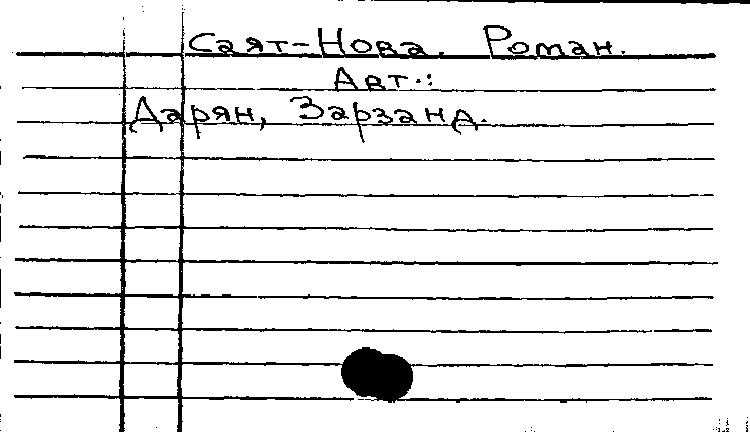 Саят-Нова. Роман.
Авт.:
Дарян, Зарзанд.